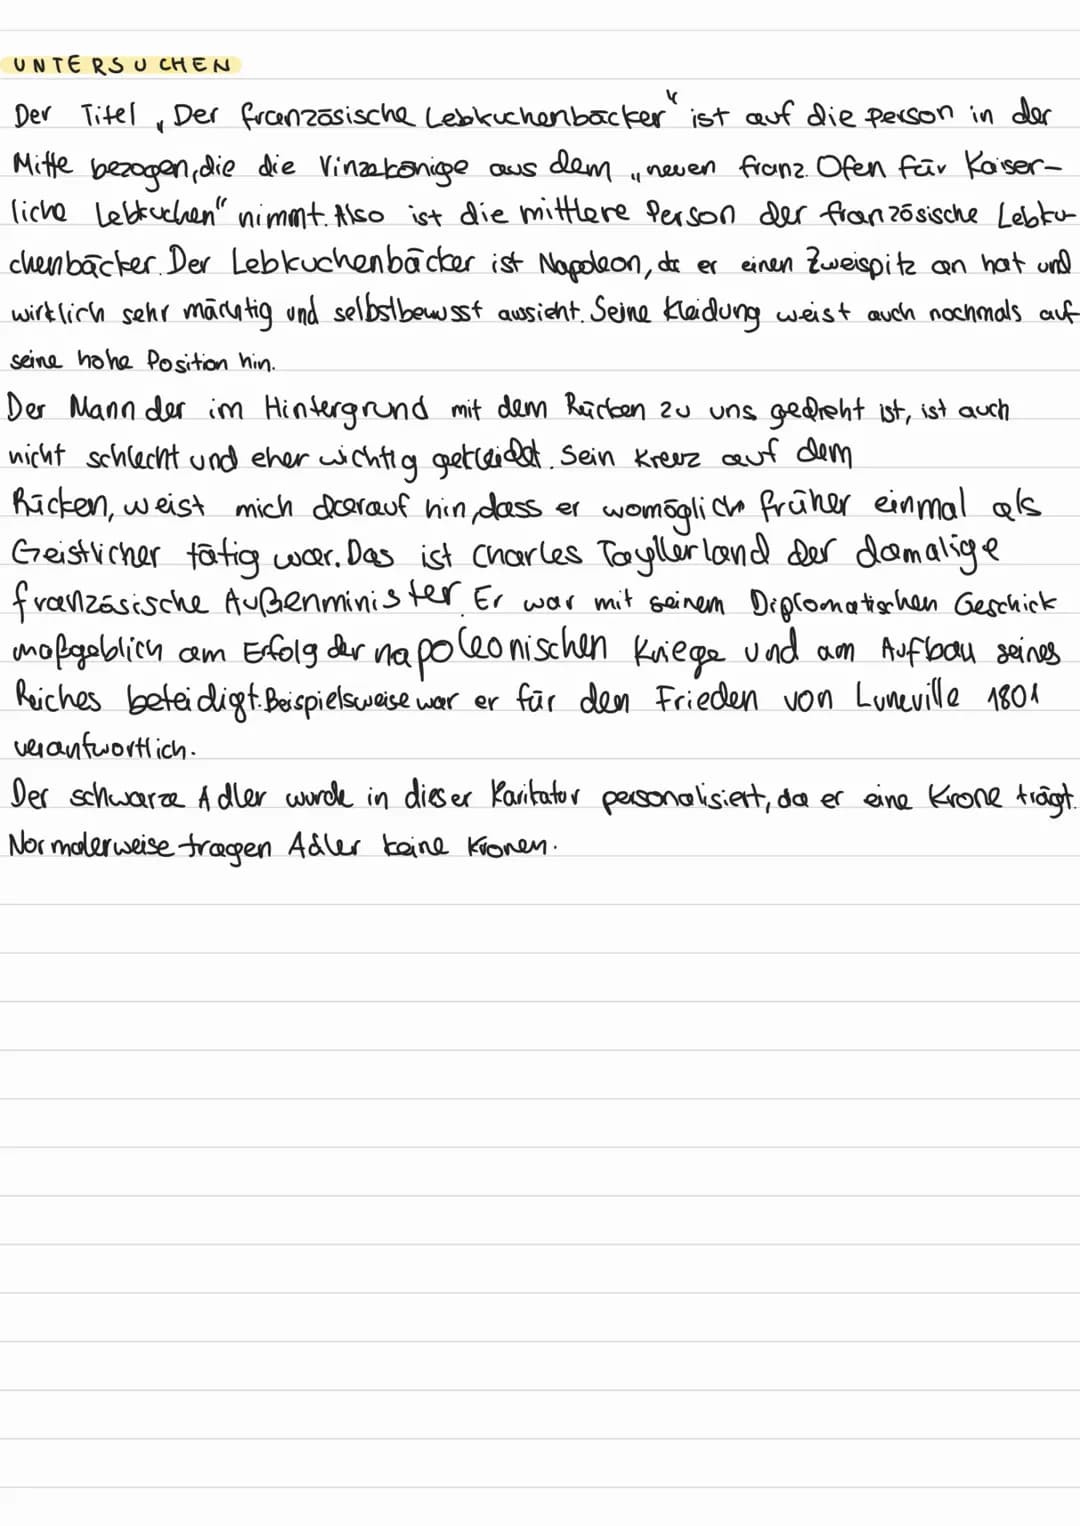 UNTERSUCHEN
Der Titel „Der französische Lebkuchenbäcker" ist auf die Person in der
Mitte bezogen, die die Vinzekönige aus dem „neuen franz. Ofen für Kaiser-
liche Lebkuchen" nimmt. Also ist die mittlere Person der französische Lebku-
chenbäcker. Der Lebkuchenbäcker ist Napoleon, da er einen Zweispitz an hat und
wirklich sehr mächtig und selbstbewusst aussieht. Seine Kleidung weist auch nochmals auf
seine hohe Position hin.
Der Mann der im Hintergrund mit dem Rücken zu uns gedreht ist, ist auch
nicht schlecht und eher wichtig gekleidet. Sein Kreuz auf dem
Rücken, weist mich darauf hin, dass er womöglich früher einmal als
Geistlicher tätig war. Das ist Charles Tayllerland der damalige
französische Außenminister. Er war mit seinem Diplomatischen Geschick
maßgeblich am Erfolg der napoleonischen Kriege und am Aufbau seines
Reiches beteidigt. Beispielsweise war er für den Frieden von Luneville 1801
verantwortlich.
Der schwarze Adler wurde in dieser Karikatur personalisiert, da er eine Krone trägt.
Normalerweise tragen Adler keine Kronen.